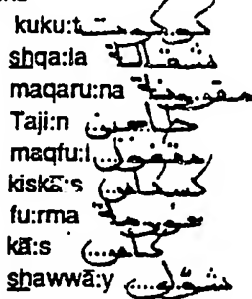 kuku:t كوكوت
shqa:la شقالة
maqaru:na مقرونة
Taji:n طاجين
maqfu:l مقفول
kiskã:s كسكاس
fu:rma فورمة
kã:s كاس
shawwã:y